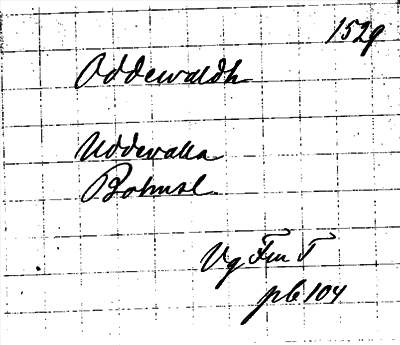 1529
Oddewaldh
Uddevalla
Bohusl.
Vg Fm I
pb 104